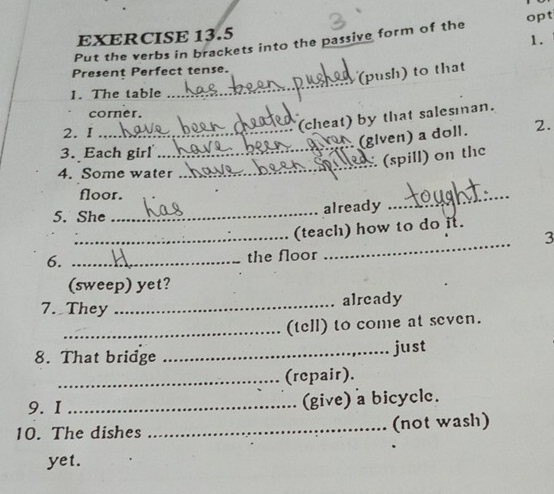 3
opt
EXERCISE 13.5
1.
Put the verbs in brackets into the passive form of the
Present Perfect tense.
1. The table has been pushed (push) to that
corner.
2. I have been cheated (cheat) by that salesman.
2.
3. Each girl have been given (given) a doll.
4. Some water have been spilled (spill) on the
floor.
5. She has already tought.
(teach) how to do it.
3
6. H the floor
(sweep) yet?
7. They already
(tell) to come at seven.
8. That bridge just
(repair).
9. I (give) a bicycle.
10. The dishes (not wash)
yet.